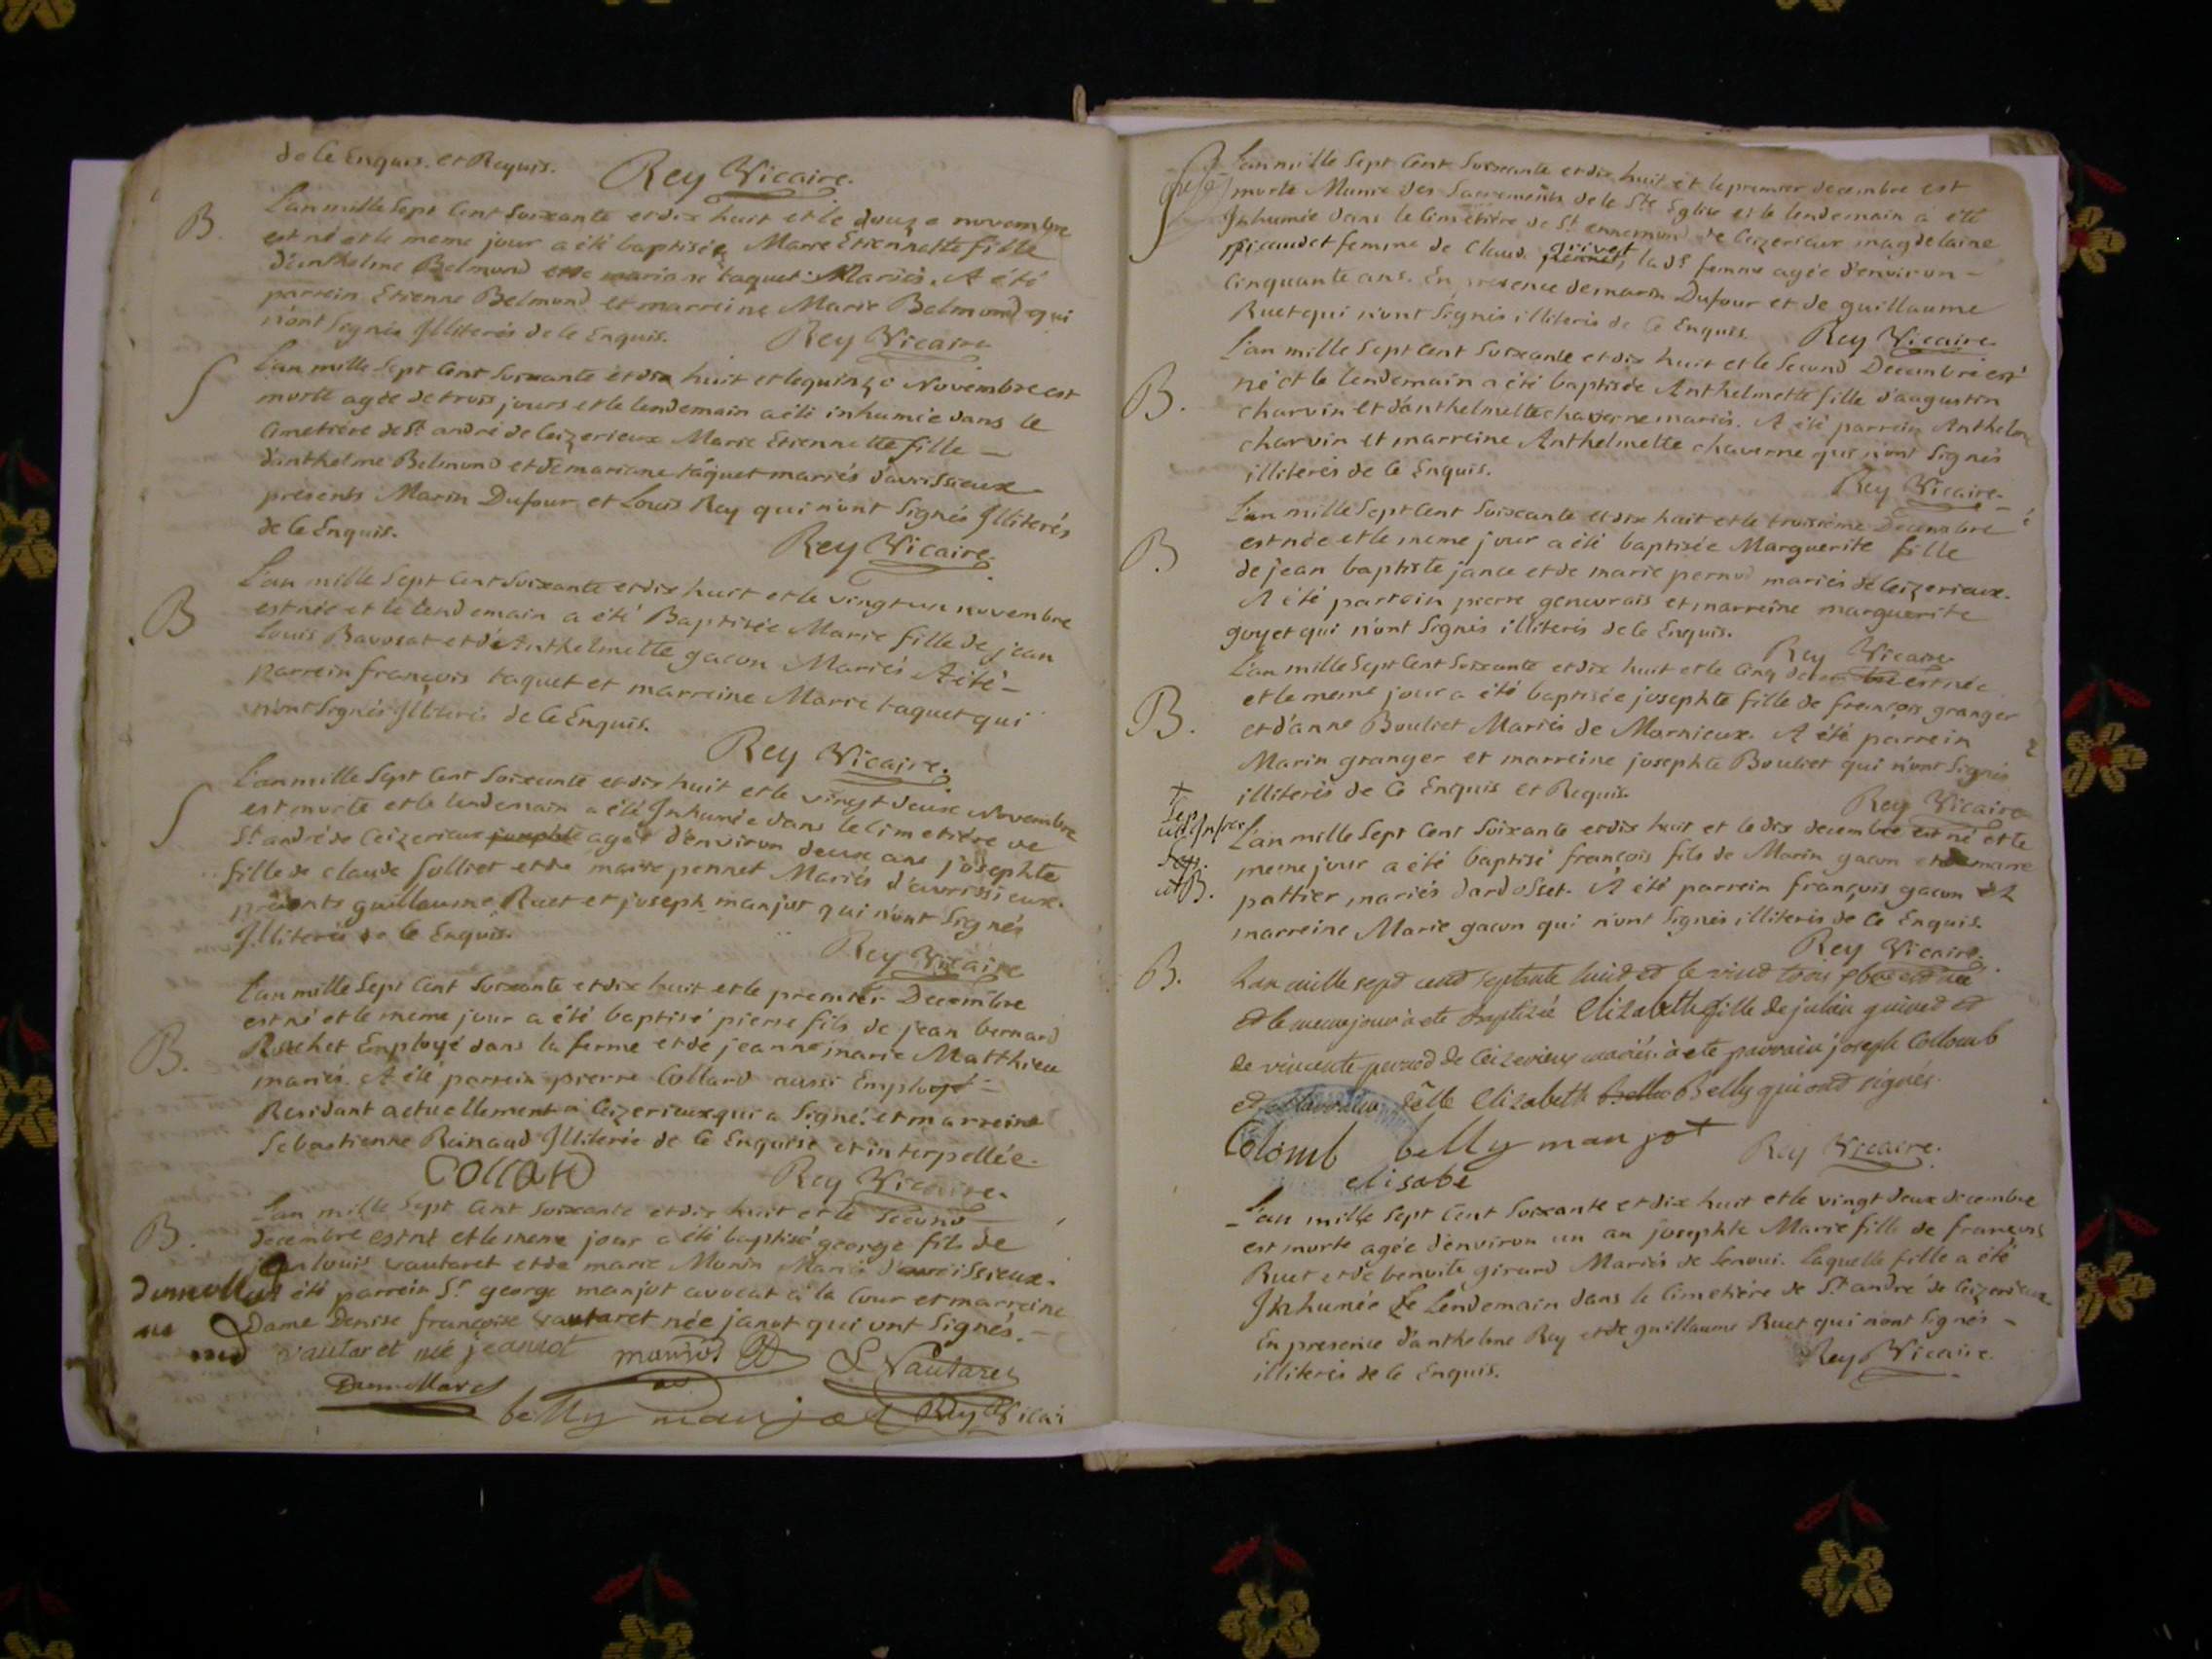 de ce Enquis. et Requis. Rey Vicaire.
B. L'an mille Sept Cent Soixante et dix huit et le douze novembre
est né et le meme jour a été baptisée Marie Etiennette fille
d'anthelme Belmond et de mariane taquet Mariés. A été
parrein Etienne Belmond et marreine Marie Belmond qui
n'ont Signés Illiterés de ce Enquis. Rey Vicaire
S L'an mille Sept Cent Soixante et dix huit et le quinze Novembre est
morte agée de trois jours et le lendemain a été inhumée dans le
Cimetière de St andré de Ceizerieux Marie Etiennette fille —
d'anthelme Belmond et de mariane taquet mariés d'avrissieux
presents Marin Dufour et Louis Rey qui n'ont Signés Illiterés
de ce Enquis. Rey Vicaire.
B L'an mille Sept Cent Soixante et dix huit et le vingt un novembre
est née et le lendemain a été Baptisée Marie fille de jean
Louis Bavosat et d'Anthelmette gacon Mariés A été —
parrein françois taquet et marreine Marie taquet qui
n'ont Signés Illiterés de ce Enquis.
Rey Vicaire.
S L'an mille Sept Cent Soixante et dix huit et le vingt deux Novembre
est morte et le lendemain a été Inhumée dans le Cimetière de
St andré de Ceizerieux josephte agée d'environ deux ans josephte
fille de claude Solliet et de marie pennet Mariés d'avrissieux.
présents guillaume Ruet et joseph manjot qui n'ont Signés
Illiterés de ce Enquis.
Rey Vicaire
L'an mille Sept Cent Soixante et dix huit et le premier Decembre
est né et le meme jour a été baptisé pierre fils de jean bernard
B. Rochet Employé dans la ferme et de jeanne marie Matthieu
mariés. A été parrein pierre Collard aussi Employé —
Residant actuellement à Ceizerieux qui a Signé. et marreine
Sebastienne Rainaud Illiterée de ce Enquise et interpellée.
Collard Rey Vicaire.
B. L'an mille Sept Cent Soixante et dix huit et le Second
decembre est né et le meme jour a été baptisé george fils de
louis vautaret et de marie Morin Mariés d'avrissieux.
été parrein Sr. george manjot avocat à la Cour et marreine
Dame Denise françoise vautaret née janot qui ont Signés. —
vautaret née jeanot manjot L Vautaret
Dumollard
belly manjot Rey Vicai
L'an mille Sept Cent Soixante et dix huit et le premier decembre est
morte Munie des Sacrements de le Ste Eglise et le lendemain a été
Inhumée dans le Cimetière de St ennemond de Ceizerieux magdelaine
picaudet femme de Claud. grivet pennet, la de femme agée d'environ —
Cinquante ans. En presence de marin Dufour et de guillaume
Ruet qui n'ont Signés illiterés de ce Enquis. Rey Vicaire
L'an mille Sept Cent Soixante et dix huit et le Second Decembre est
B. né et le lendemain a été baptisée Anthelmette fille d'augustin
charvin et d'anthelmette chaverne mariés. A été parrein Anthelme
charvin et marreine Anthelmette chaverne qui n'ont Signés
illiterés de ce Enquis.
Rey Vicaire.
L'an mille Sept Cent Soixante et dix huit et le troisième Decembre
B. est née et le meme jour a été baptisée Marguerite fille
de jean baptiste jance et de marie pernod mariés de Ceizerieux.
A été parrein pierre genevrais et marreine marguerite
goyet qui n'ont Signés illiterés de ce Enquis.
Rey Vicaire
L'an mille Sept Cent Soixante et dix huit et le Cinq decembre est née
et le meme jour a été baptisée josephte fille de françois granger
B. et d'anne Bouliet Mariés de Marnieux. A été parrein
Marin granger et marreine josephte Bouliet qui n'ont Signés
illiterés de ce Enquis et Requis.
Rey Vicaire
L'an mille Sept Cent Soixante et dix huit et le dix decembre est né et le
meme jour a été baptisé françois fils de Marin gacon et de marie
B. pattier mariés d'ardosset. A été parrein françois gacon et
marreine Marie gacon qui n'ont Signés illiterés de ce Enquis.
Rey Vicaire.
B. L'an mille sept cent septante huit et le vint trois xbre est née
et le meme jour a ete baptizée Elizabeth fille de julien guinet et
de vincente pernod de Ceizerieux mariés. a ete parrain joseph Collomb
et marraine delle Elizabeth bella Belly qui ont signés.
Colomb belly manjot Rey Vicaire.
elisabe
L'an mille Sept Cent Soixante et dix huit et le vingt deux decembre
est morte agée d'environ un an josephte Marie fille de françois
Ruet et de benoite girard Mariés de Senoui. Laquelle fille a été
Inhumée Le Lendemain dans le Cimetière de St andré de Ceizerieux
En presence d'anthelme Rey et de guillaume Ruet qui n'ont Signés —
illiterés de ce Enquis. Rey Vicaire.